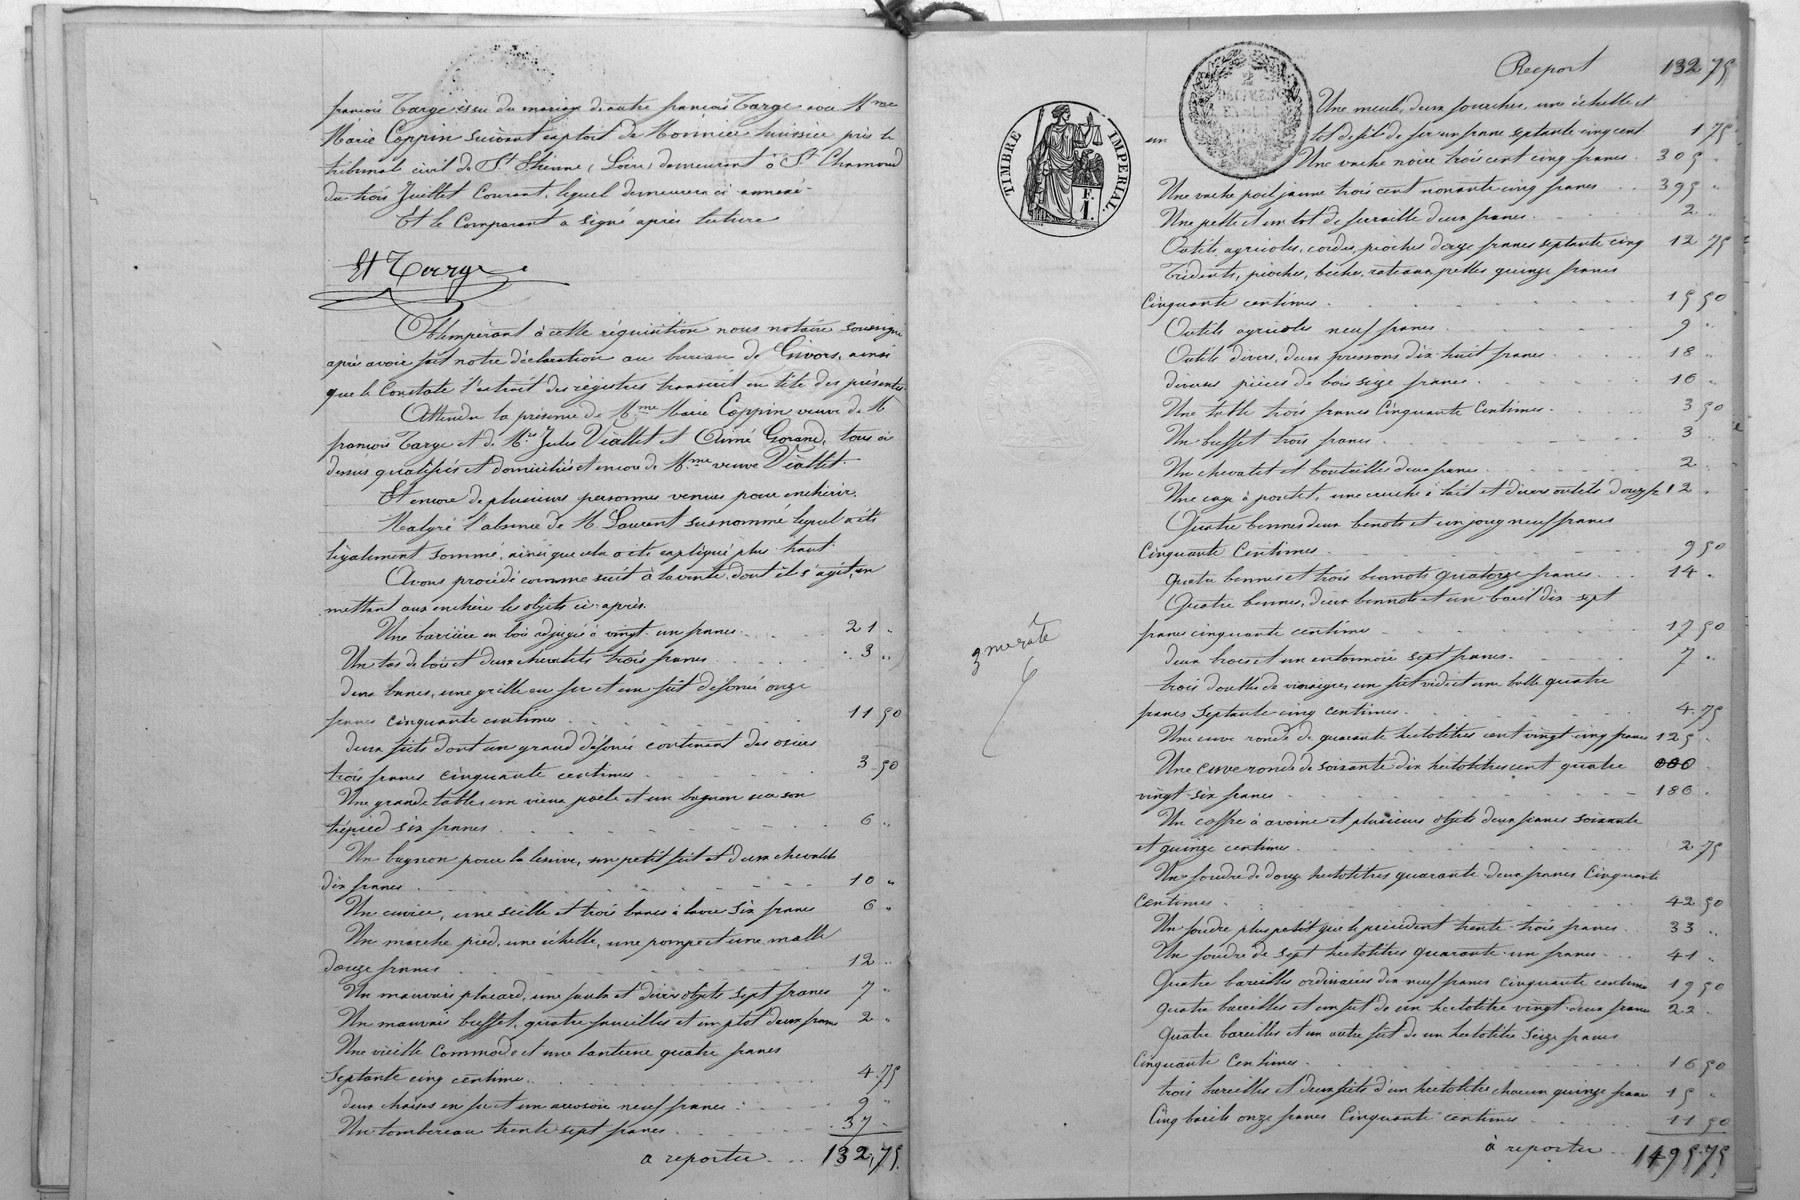 françois Targe issu du mariage de autre françois Targe avec Mme
Marie Coppin suivant exploit de Monnier huissier près le
tribunal civil de St Etienne (Loire) demeurant à St Chamond
du trois Juillet Courant, lequel demeurera ci-annexé.
Et le Comparant a signé après lecture
Et Targe
Obtempérant à cette réquisition nous notaire soussigné
après avoir fait notre déclaration au bureau de Givors, ainsi
que le Constate l'extrait des régistres transcrit en tête des présentes
Attendu la présence de Mme Marie Coppin veuve de M
françois Targe et de Mrs Jules Viallet et Aimé Gorand, tous ci
dessus qualifiés et domiciliés et encore de Mme veuve Viallet.
Et encore de plusieurs personnes venues pour enchérir.
Malgré l'absence de M. Laurent susnommé lequel a été
légalement sommé, ainsi que cela a été expliqué plus haut.
Avons procédé comme suit à la vente dont il s'agit, en
mettant aux enchères les objets ci-après.
Une barrière en bois adjugée à vingt-un francs 21 "
Un tas de bois et deux chevalets trois francs 3 "
deux bancs, une grille en fer et un fût défoncé onze
francs cinquante centimes 11 50
deux fûts dont un grand défoncé contenant des osiers
trois francs cinquante centimes 3 50
Une grande table, un vieux poële et un bugnon sur son
trépied six francs 6 "
Un bugnon pour la lessive, un petit fût et deux chevalets
dix francs 10 "
Un cuvier, une seille et trois bancs à laver six francs 6 "
Un marche pied, une échelle, une pompe et une malle
douze francs 12 "
Un mauvais placard, une et divers objets sept francs 7 "
Un mauvais buffet, quatre faucilles et un plot deux francs 2 "
Une vieille Commode et une lanterne quatre francs
Septante cinq centimes 4 75
deux chaises en fer et un arrosoir neuf francs 9 "
Un tombereau trente sept francs 37 "
a reporter 132,75
TIMBRE IMPERIAL
F. 1.
2 DECIMES
Report 132 75
Une meule, deux fourches, une échelle et
un lot de fil de fer un franc septante cinq cent 1 75
Une vache noire trois cent cinq francs 305 "
Une vache poil jaune trois cent nonante cinq francs 395 "
Une pelle et un lot de ferraille deux francs 2 "
Outils agricoles, cordes, pioches douze francs septante cinq 12 75
Tridents, pioches, bêches, rateaux pelles quinze francs
Cinquante centimes 15 50
Outils agricoles neuf francs 9 "
Outils divers, deux pressons dix-huit francs 18 "
diverses pièces de bois seize francs 16 "
Une table trois francs Cinquante Centimes 3 50
Un buffet trois francs 3 "
Un chevalet et bouteilles deux francs 2 "
Une cage à poulet, une cruche à lait et divers outils douze f 12 "
Quatre bennes deux benots et un joug neuf francs
Cinquante Centimes 9 50
Quatre bennes et trois bennots quatorze francs 14 "
Quatre bennes, deux bennots et un baril dix-sept
francs cinquante centimes 17 50
deux brocs et un entonnoir sept francs 7 "
trois doubles de vinaigre, un fût vide et une balle quatre
francs septante-cinq centimes 4 75
Une cuve ronde de quarante hectolitres cent vingt-cinq francs 125 "
Une cuve ronde de soixante dix hectolitres cent quatre
vingt-six francs 186 "
Un coffre à avoine et plusieurs objets deux francs soixante
et quinze centimes 2 75
Un foudre de douze hectolitres quarante-deux francs Cinquante
Centimes 42 50
Un foudre plus petit que le précédent trente-trois francs 33 "
Un foudre de sept hectolitres quarante-un francs 41 "
Quatre bareilles ordinaires dix neuf francs cinquante centimes 19 50
Quatre bareilles et un fut de un hectolitre vingt-deux francs 22 "
Quatre bareilles et un autre fût de un hectolitre Seize francs
Cinquante Centimes 16 50
trois bareilles et deux fûts d'un hectolitre chacun quinze francs 15 "
Cinq barils onze francs Cinquante centimes 11 50
à reporter 1495.75